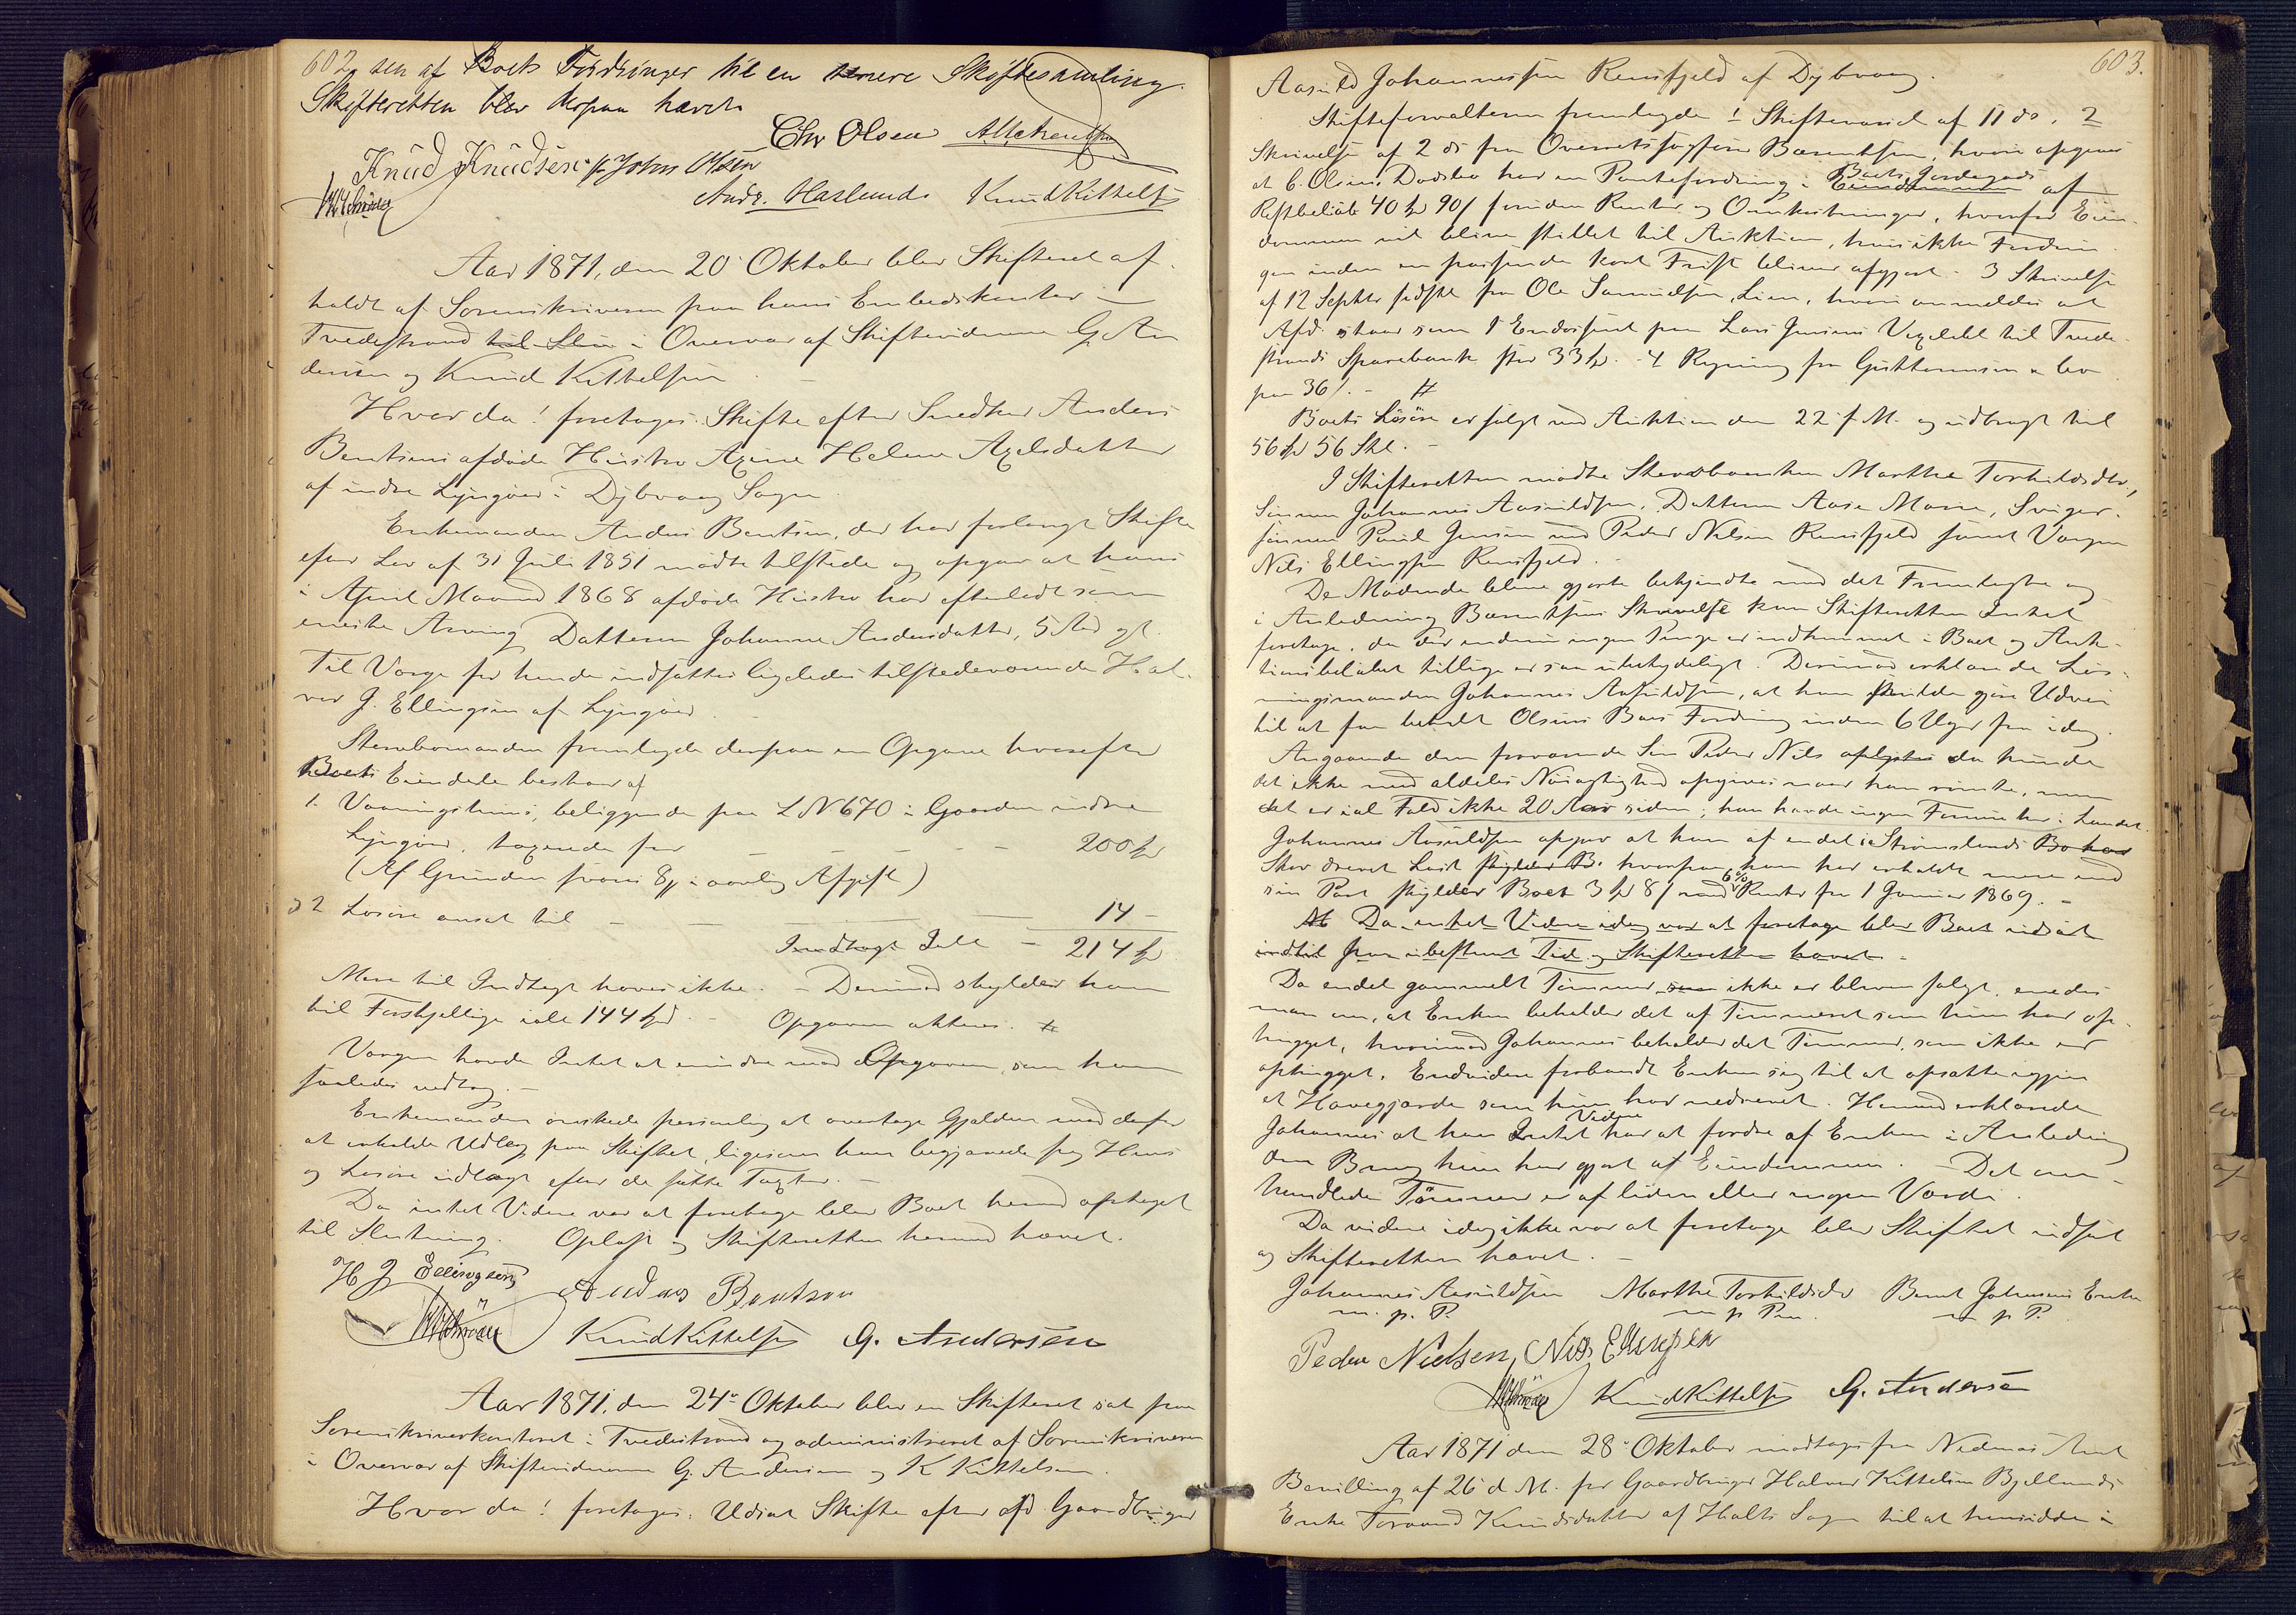 602
sen af Boets Fordringer til en senere Skiftesamling.
Skifteretten blev derpaa hævet.
Chr Olsen
Knud Knudsen John Olsen
Andr. Haslund Knud Kittelsen
Aar 1871, den 20 Oktober blev Skifteret af-
holdt af Sorenskriveren paa hans Embedskontor i
Tvedestrand i Overvær af Skiftevidnerne G. An-
dersen og Knud Kittelsen.
Hvor da! foretoges: Skifte efter Snedker Anders
Bentsens afdøde Hustro Axine Helene Axelsdatter
af indre Lyngøer i Dybvaag Sogn.
Enkemanden Anders Bentsen, der har forlangt Skifte
efter Lov af 31 Juli 1851 mødte tilstede og opgav at hans
i April Maaned 1868 afdøde Hustro har efterladt som
eneste Arving Datteren Johanne Andersdatter, 5 Aar gl.
Til Værge for hende indsattes ligeledes tilstedeværende Hal-
vor J. Ellingsen af Lyngøer.
Stervbomanden fremlagde derpaa en Opgave hvorefter
Boets Eiendele bestaar af
1. Vaaningshuus, beliggende paa L N 670 i Gaarden indre
Lyngøer, taxerede for 200
(Af Grunden svares i aarlig Afgift)
2 Løsøre ansat til 14 -
Indtægt Ialt 214
Mere til Indtægt haves ikke. - Derimod skylder han
til Forskjellige ialt 144 Opgaven aktes.
Værgen havde Intet at erindre mod Opgaven, som han
saaledes vedtog. -
Enkemanden ønskede personlig at overtage Gjælden mod derfor
at erholde Udlæg paa Skiftet, ligesom han begjærede sig Huus
og Løsøre udlagt efter de satte Taxter. -
Da intet Videre var at foretage blev Boet hermed optaget
til Slutning. Oplæst og Skifteretten hermed hævet.
H J Ellingsen Anders Bentsen
Knud Kittelsen G. Andersen
Aar 1871, den 24 Oktober blev en Skifteret sat paa
Sorenskriverkontoret i Tvedestrand og administreret af Sorenskriveren
i Overvær af Skiftevidnerne G. Andersen og K Kittelsen.
Hvor da! foretoges: Udsat Skifte efter afd Gaardbruger
603.
Aasuld Johannessen Rensfjeld af Dybvaag.
Skifteforvalteren fremlagde 1 Skiftevarsel af 11 ds. 2
Skrivelse af 2 ds fra Overretssagfører Barentsen, hvori opgives
at C. Olsens Dødsbo har en Pantefordring i Boets Jordegods af
Restbeløb 40 90 foruden Renter og Omkostninger, hvorfor Eien-
dommen vil blive stillet til Auktion, hvis ikke Fordrin-
gen inden en passende kort Frist bliver afgjort. 3 Skrivelse
af 12 Septbr sidstl fra Ole Samuelsen, Lien, hvori anmeldes at
Afd. staar som 1 Endossent paa Lars Jensens Vexelobl til Tvede-
strands Sparebank stor 33. - 4 Regning fra
paa 36. -
Boets Løsøre er solgt ved Auktion den 22 f. M. og udbragt til
56 56 Skl. -
I Skifteretten mødte Stervboenken Marthe Torkildsdtr,
Sønnen Johannes Aasuldsen, Datteren Aase Marie, Sviger-
sønnen Poul Jensen ved Peder Nilsen Rensfjeld samt Værgen
Nils Ellingsen Rensfjeld.
De Mødende bleve gjorte bekjendte med det Fremlagte og
i Anledning Barentsens Skrivelse kan Skifteretten Intet
foretage, da der endnu ingen Penge er indkommet i Boet og Auk-
tionsbeløbet tillige er saa ubetydeligt. Derimod erklærede Løs-
ningsmanden Johannes Aasuldsen, at han skulde gjøre Udvei
til at faa betalt Olsens Boes Fordring inden 6 Uger fra idag.
Angaaende den fraværende Søn Peder Nils oplystes da kunde
det ikke med aldeles Nøiagtighed opgives naar han rømte, men
det er ial Fald ikke 20 Aar siden; han havde ingen Formue her i Landet.
Johannes Aasuldsen opgav at han af endel i Strømslands Bo
Skov drevet Last hvorfra han har erholdt mere end
sin Part skylder Boet 3 8 med 6% Renter fra 1 Januar 1869. -
Da intet Videre idag var at foretage blev Boet udsat
indtil paa ubestemt Tid og Skifteretten hævet. -
Da endel gammelt Tømmer ikke er bleven solgt, enedes
man om, at Enken beholder det af Tømmeret som hun har op-
hugget, hvorimod Johannes beholder det Tømmer, som ikke er
ophugget. Endvidere forbandt Enken sig til at opsætte igjen
et Havegjærde som hun har nedrevet. Hermed erklærede
Johannes at han Intet Videre har at fordre af Enken i Anledning
den Brug hun har gjort af Eiendommen. - Det om-
handlede Tømmer er af liden eller ingen Værdi.
Da videre idag ikke var at foretage blev Skiftet udsat
og Skifteretten hævet. -
Johannes Aasuldsen Marthe Torkildsdtr Bernt Johansens Enke
m. p. P. m p Pen. m p P.
Peder Nielsen, Nils Ellingsen
Knud Kittelsen G. Andersen
Aar 1871 den 28 Oktober modtoges fra Nedenes Amt
Bevilling af 26 d. M. for Gaardbruger Halvor Kittelsen Bjellands
Enke Toraand Knudsdatter af Holts Sogn til at hensidde i